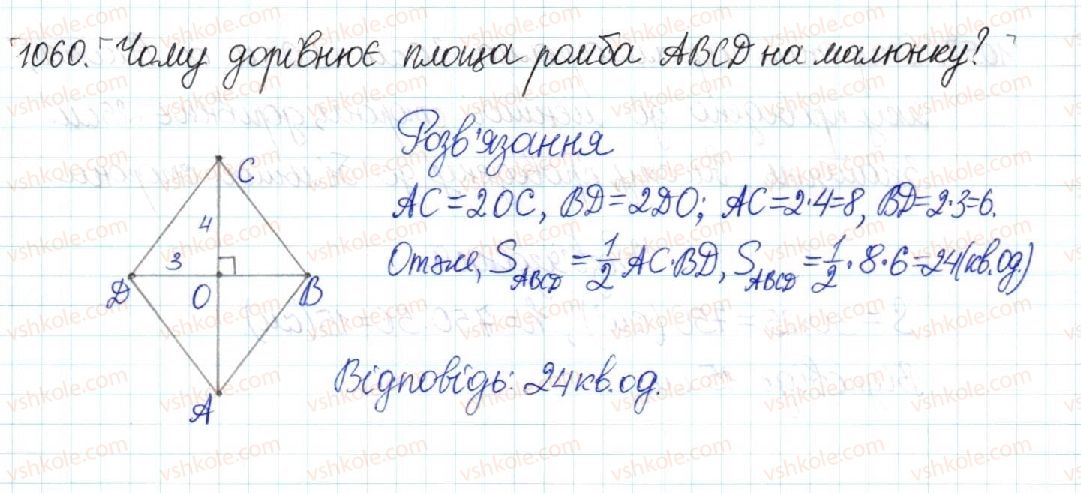 1060. Чому дорівнює площа ромба ABCD на малюнку?
Розв'язання
AC = 2OC, BD = 2DO; AC = 2·4=8, BD = 2·3=6.
Отже, S_ABCD = 1/2 AC·BD, S_ABCD = 1/2 · 8 · 6 = 24(кв.од)
Відповідь: 24 кв.од.
C
4
3
D
O
B
A
vshkole.com